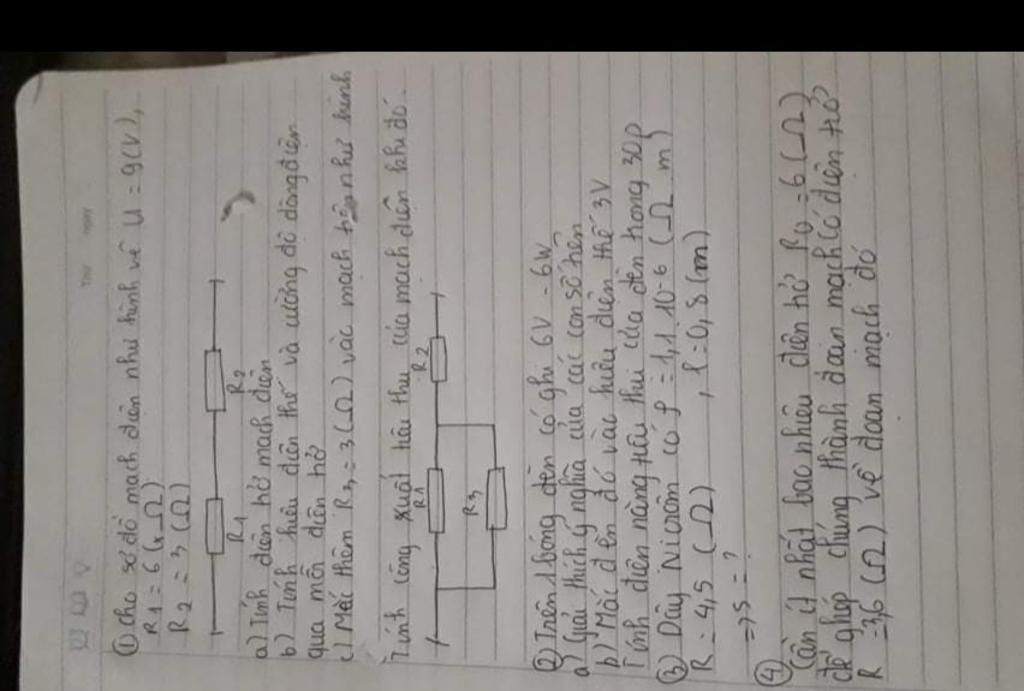 Thứ ngày
① Cho sơ đồ mạch điện như hình vẽ U = 9(V),
R1 = 6 (Ω)
R2 = 3 (Ω)
R1 R2
a) Tính điện trở mạch điện
b) Tính hiệu điện thế và cường độ dòng điện
qua mỗi điện trở
c) Mắc thêm R3 = 3 (Ω) vào mạch trên như hình
Tính công xuất tiêu thụ của mạch điện khi đó.
R1 R2
R3
② Trên 1 bóng đèn có ghi 6V - 6W
a) Giải thích ý nghĩa của các con số trên
b) Mắc đèn đó vào hiệu điện thế 3V
Tính điện năng tiêu thụ của đèn trong 30p
③ Dây Nicrôm có ρ = 1,1.10-6 (Ω m)
R = 4,5 (Ω) , l = 0,8 (m)
=> S = ?
④
Cần ít nhất bao nhiêu điện trở R0 = 6 (Ω)
để ghép chúng thành đoạn mạch có điện trở
R = 3,6 (Ω) vẽ đoạn mạch đó